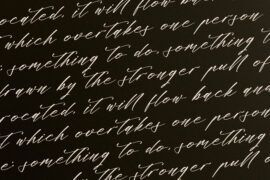 rocated, it will flow back and
t which overtakes one person
e: something to do, something t
drawn by the stronger pull of
rocated, it will flow back and
t which overtakes one person
e: something to do, something t
drawn by the stronger pull o